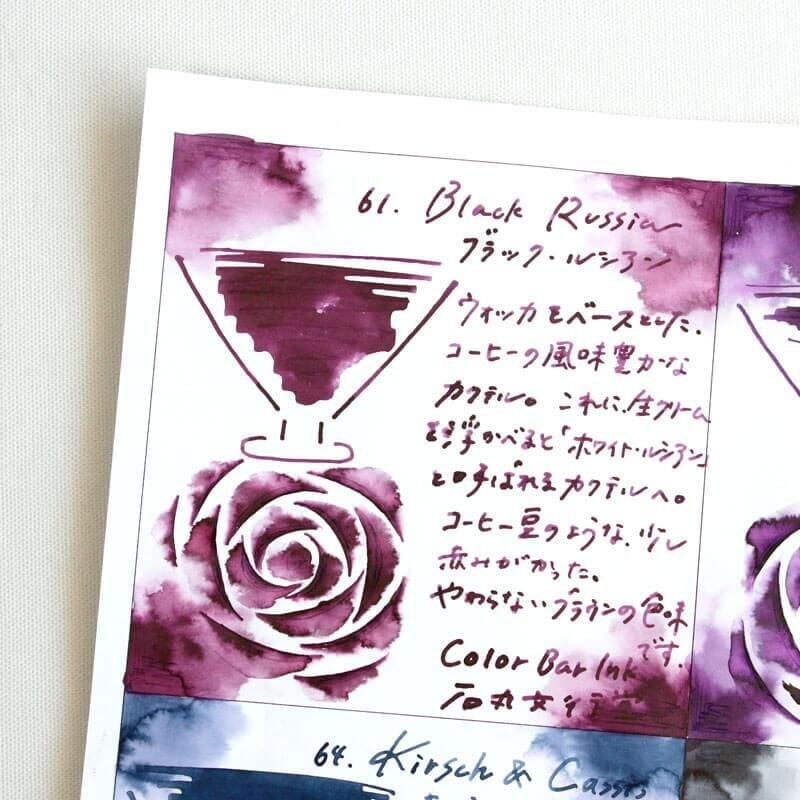 61. Black Russian
ブラック・ルシアン
ウォッカをベースとした、
コーヒーの風味豊かな
カクテル。これに、生クリーム
を浮かべると「ホワイト・ルシアン」
と呼ばれるカクテルへ。
コーヒー豆のような、少し
赤みがかった。
やわらないブラウンの色味
です。
Color Bar Ink
石丸文行堂
64. Kirsch & Cassis